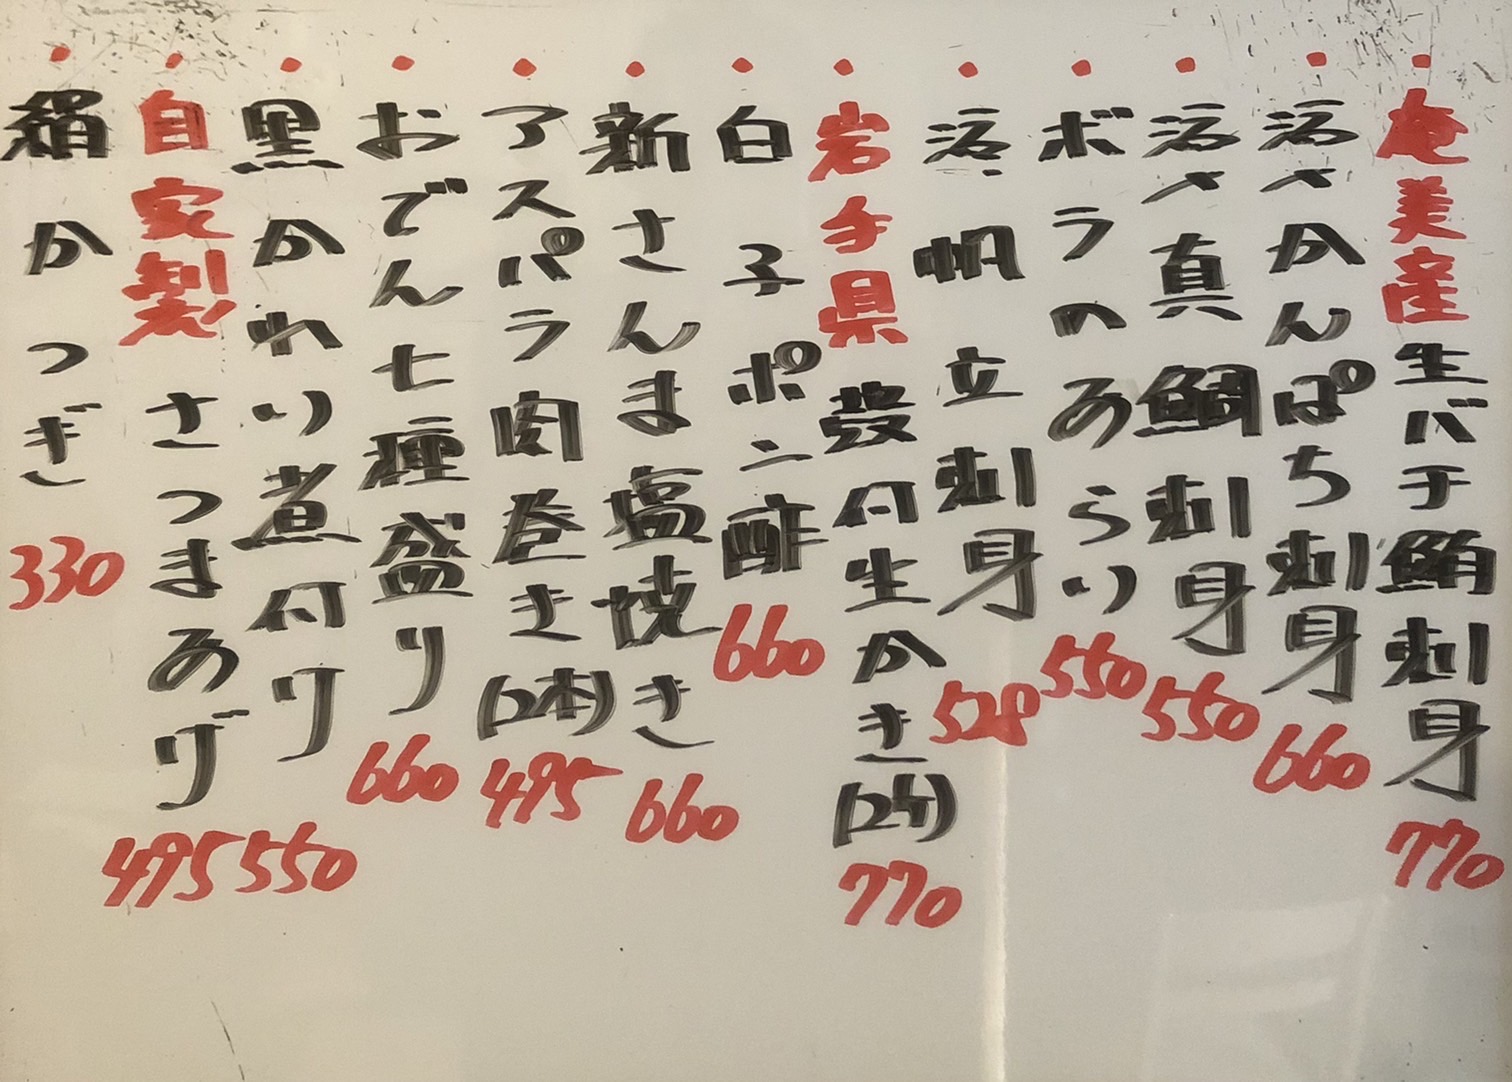 ・奄美産生バチ鮪刺身 770
・活〆かんぱち刺身 660
・活〆真鯛刺身 550
・ボラのあらい 550
・活帆立刺身 528
・岩手県殻付生かき(2ケ) 770
・白子ポン酢 660
・新さんま塩焼き 660
・アスパラ肉巻き(2本) 495
・おでん七種盛り 660
・黒かれい煮付け 550
・自家製さつまあげ 495
・絹かつぎ 330